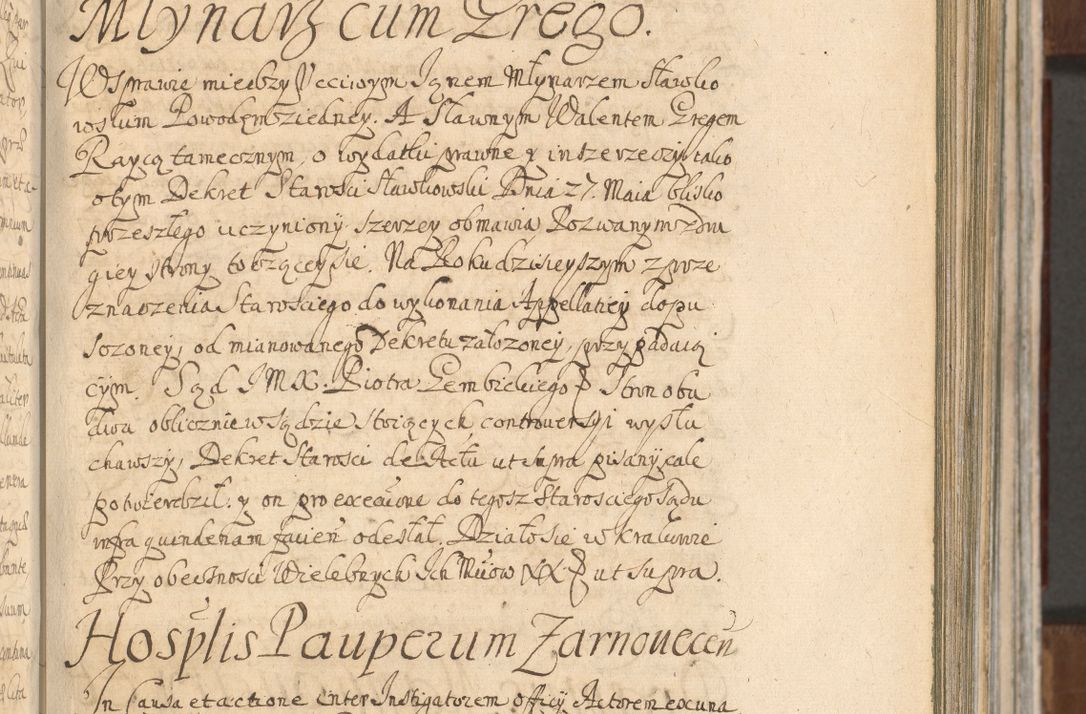 Młynarz cum Grego.
W Sprawie między Uccivym Janem Młynarzem Sławko
wskim Powodem z iedney. A Sławnym Walentem Gregem
Raycą tamecznym, o wydatki prawne y inszerzeczy, iako
o tym Dekret Starosci Sławkowski Dnia 27. Maia blisko
przeszłego uczyniony szerzey obmawia Pozwanym z dru
giey strony toczącey sie. Na Roku dzisieyszym z prze
znaczenia Staroskiego do wykonania Appellatiey dopu
sczoney, od mianowanego Dekretu założoney, przypadaią
cym. Sąd JMX. Piotra Gembickiego Stron obu
dwu oblicznie w Sądzie stoiących controversyi wysłu
chawszy, Dekret Starosci de Actu ut supra pisany, cale
potwierdził: y on pro executione do tegosz Starosciego Sądu
infra quindenam odesłał. Działo sie w Krakowie
Przy obecnosci Wielebnych Ich Mciow XX. ut supra.
Hosplis Pauperum Zarnovecen
In Causa et actione inter Instigatorem officy Actorem ex una